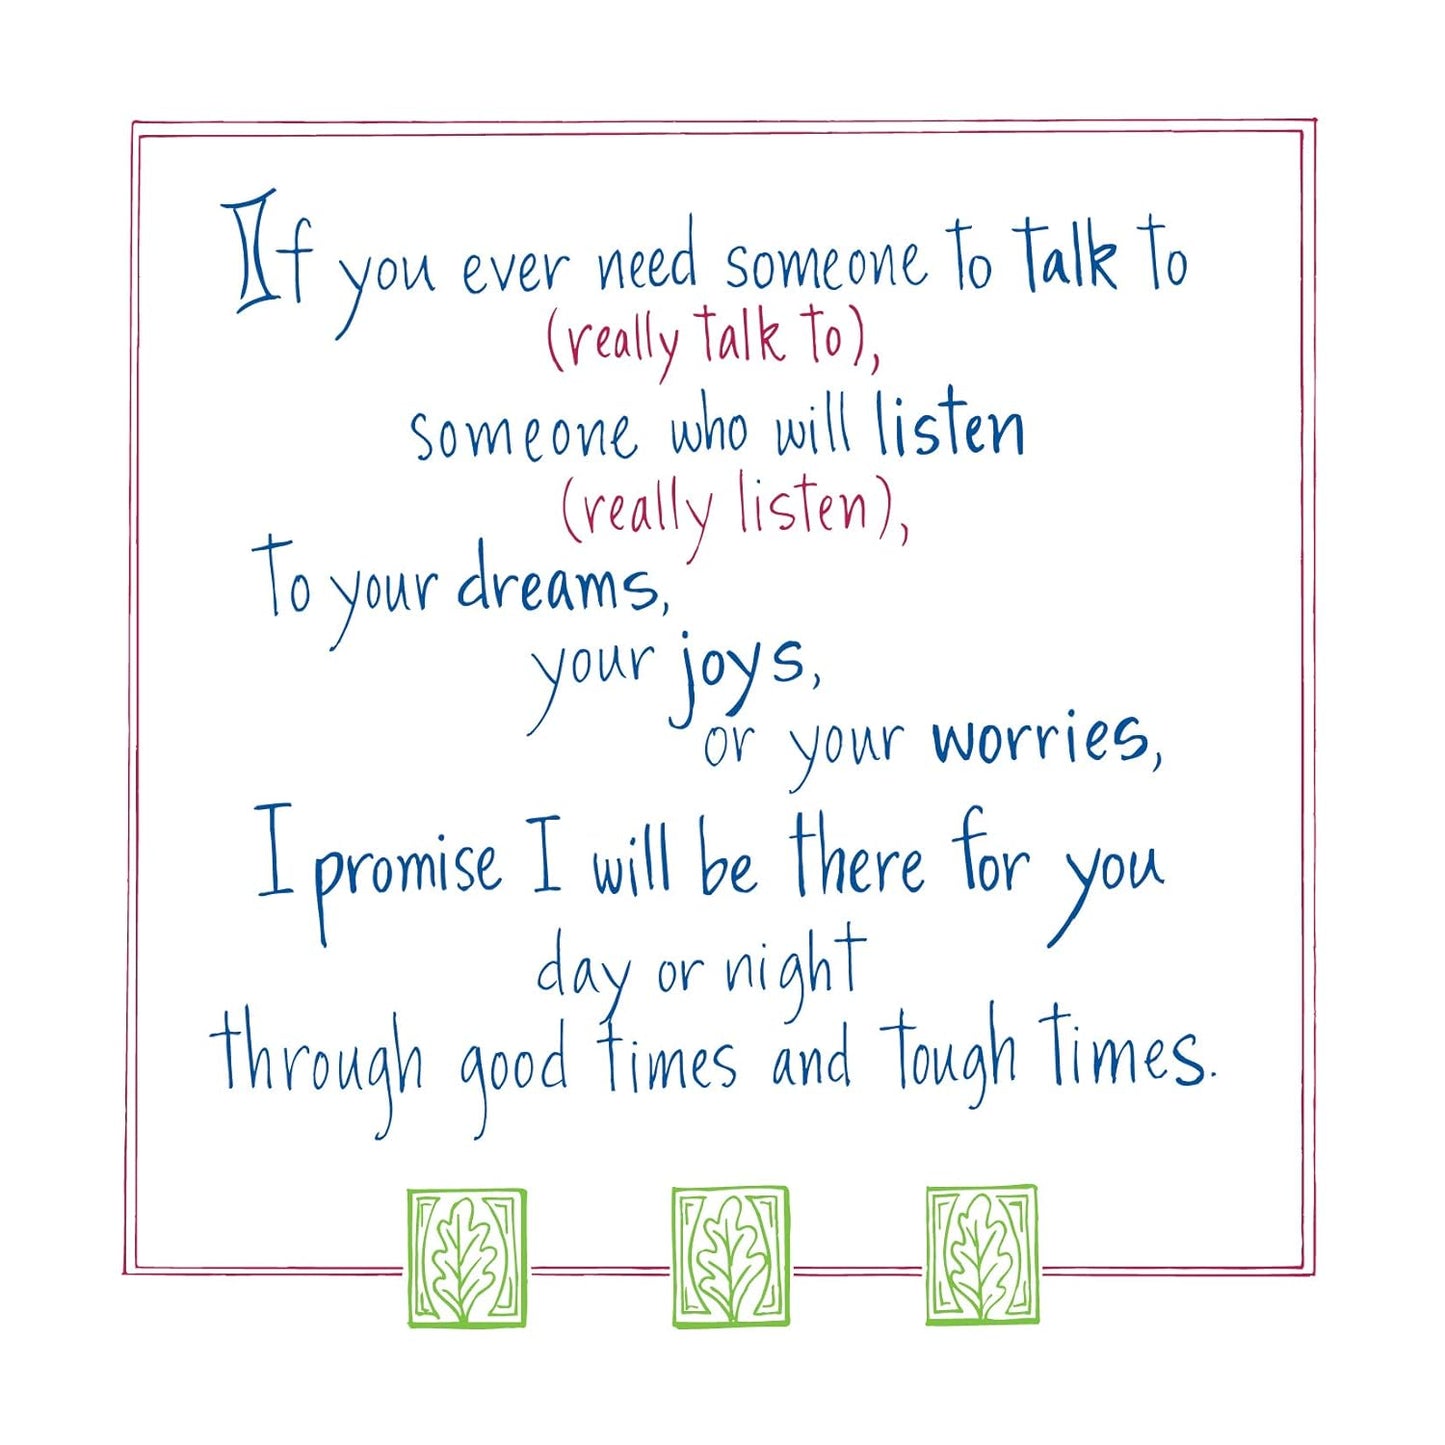 If you ever need someone to talk to
(really talk to),
someone who will listen
(really listen),
to your dreams,
your joys,
or your worries,
I promise I will be there for you
day or night
through good times and tough times.